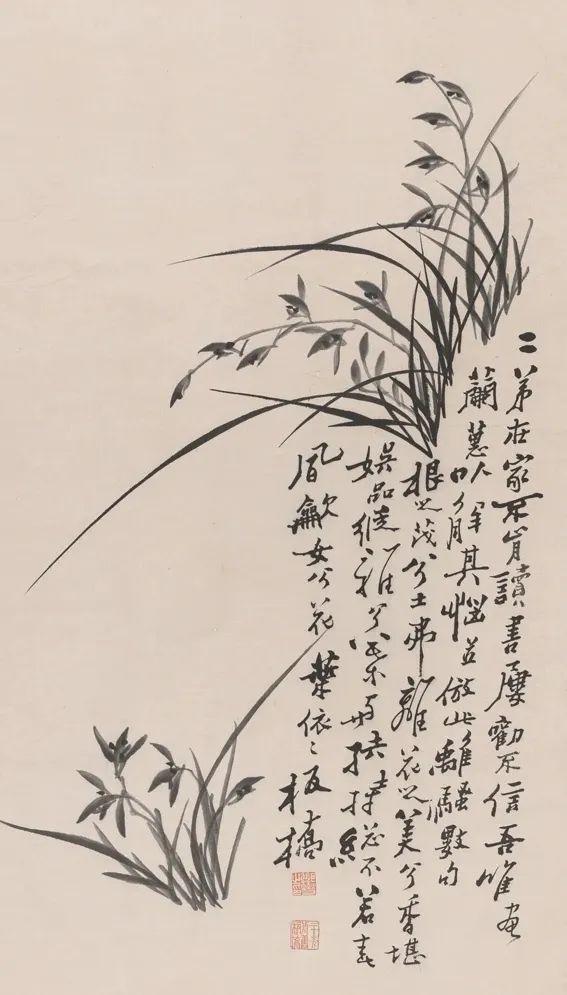 二弟在家不肯讀書屢勸不信吾唯畫
蘭蕙以解其惱並倣此離騷數句
根之茂兮土弗離花之美兮香堪
娛品逾雅兮葉多扶持總不若春
風歙女兮花葉依〻板橋